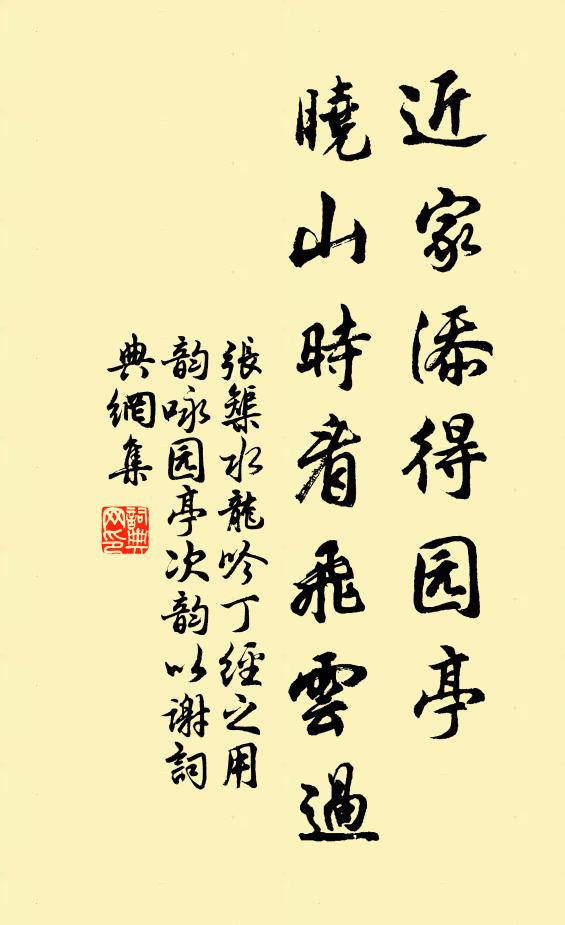 近家添得园亭
曉山時看飛雲過
張榘水龍吟丁經之用
韵咏园亭次韵以謝詞
典網集
詞典网印